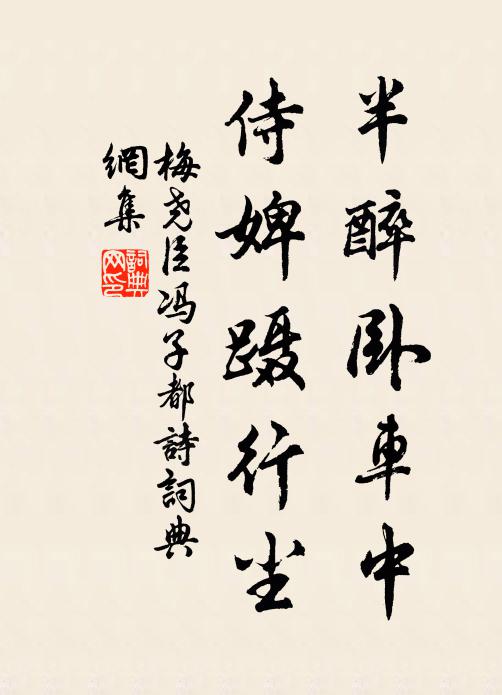 半醉卧車中
侍婢蹑行尘
梅尧臣冯子都詩詞典
網集
詞典网印